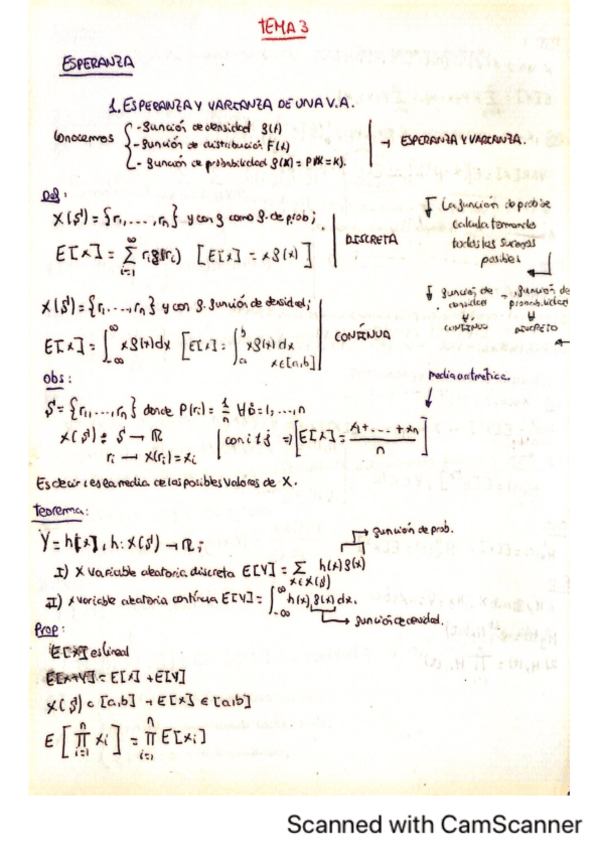 TEMA 3
ESPERANZA
1. ESPERANZA Y VARIANZA DE UNA V.A.
Conocemos { - Función de densidad f(x)
- Función de distribución F(x)
- Función de probabilidad f(x) = P(X=x).
→ ESPERANZA Y VARIANZA.
Def:
X(S) = {r1, ..., rn} y con f como f. de prob;
E[X] = ∑_{i=1}^{∞} ri f(ri) [E[x] = x f(x)]
DISCRETA
La función de prob se
calcula tomando
todos los
posibles
X(S) = {r1, ..., rn} y con f. función de densidad;
E[X] = ∫_{-∞}^{∞} x f(x) dx [E[x] = ∫_a^b x f(x) dx
x ∈ [a,b]
CONTINUA
función de
densidad
CONTINUO
función de
probabilidad
DISCRETO
Obs:
media aritmética.
S = {r1, ..., rn} donde P(ri) = 1/n ∀i = 1, ..., n
X(S) : S → ℝ
ri → X(ri) = xi
con i ≠ j ⇒ [E[X] = (x1 + ... + xn)/n]
Es decir, es la media de los posibles valores de X.
Teorema:
Y = h[X], h: X(S) → ℝ;
función de prob.
I) X variable aleatoria discreta E[Y] = ∑_{x∈X(S)} h(x) f(x)
II) X variable aleatoria continua E[Y] = ∫_{-∞}^{∞} h(x) f(x) dx.
función de densidad.
Prop:
E[X] es lineal
E[X+Y] = E[X] + E[Y]
X(S) ⊂ [a,b] → E[X] ∈ [a,b]
E[∏_{i=1}^{n} xi] = ∏_{i=1}^{n} E[xi]
Scanned with CamScanner